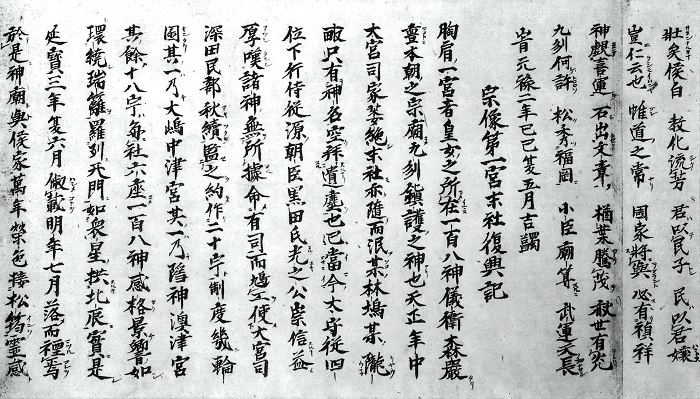 壯矣侯白 教化流芳 君以民子 民以君孃
豈仁云也 惟道之常 國家將興 必有禎祥
神覡喜運 石出文章 楢葉勝茂 秋世有
九州何許 松秀福岡 小臣廟尊 武運天長
旹元祿二年己巳夏五月吉蠲
宗像第一宮末社復興記
胸肩一宮者皇女之所在一百八神儀衛森嚴
本朝之宗廟九州鎮護之神也天正年中
大宮司家絶末社亦隨而泯某林塢某隴
畝只有神名空拜遺塵也已當今太守從四
位下行侍從源朝臣黒田氏光之公崇信益
厚嘆諸神無所據命有司而鳩工使大宮司
深田民部秋續監之約作二十宇制度幾輪
圍其一乃大嶋中津宮其一乃陪神澳津宮
其餘十八宇每社六座一百八神感格景響如
環繞瑞籬羅列天門如衆星拱北辰實是
延寶三年夏六月俶載明年七月落而禋焉
於是神廟與侯家萬年榮色接松筠靈感